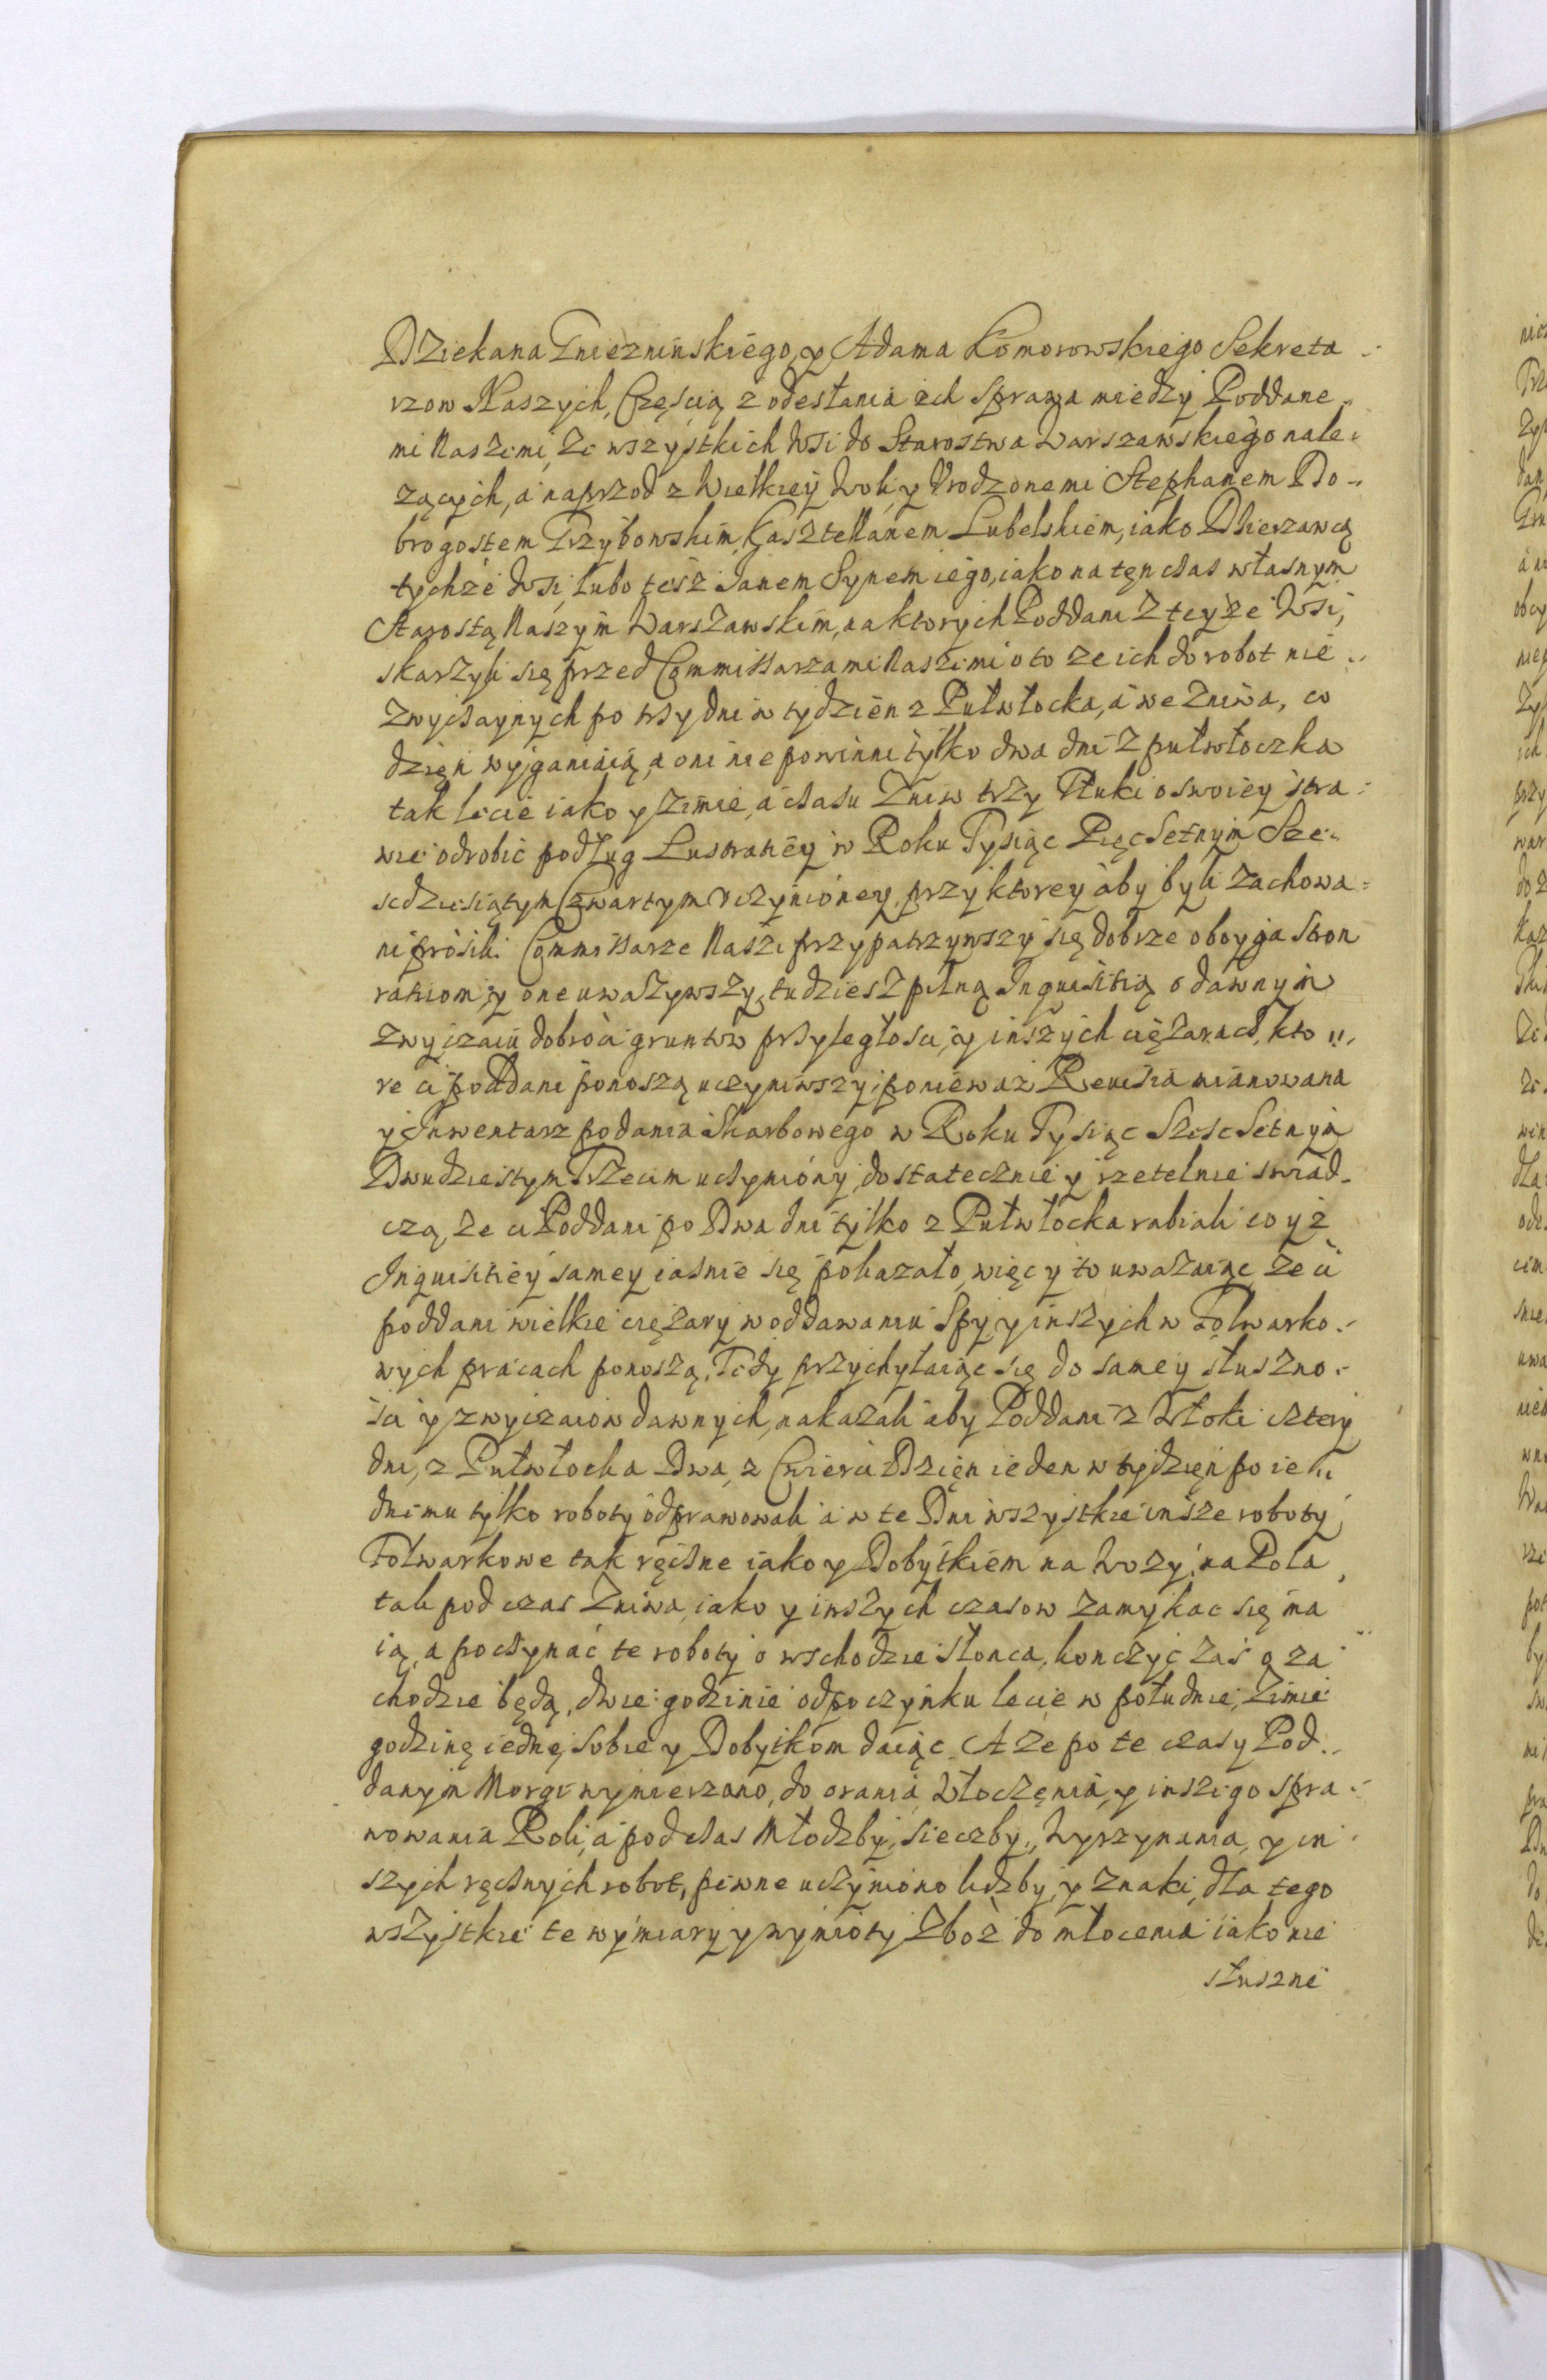 Dziekana Gnieznińskiego, y Adama Komorowskiego Sekreta-
rzow Naszych, Częścią z odesłania ich sprawa miedzy Poddane-
mi Naszemi, ze wszystkich Wsi do Starostwa Warszawskiego nale-
zących, a naprzod z Wielkiey Woli, y Urodzonemi Stephanem Do-
brogostem Grzybowskim, Kasztellanem Lubelskiem, iako Dzierzawcą
tychże Wsi, lubo tesz Janem Synem iego, iako na tęn czas własnym
Starostą Naszym Warszawskim, na ktorych Poddani z teyże Wsi,
skarzyli się przed Commissarzami Naszemi o to ze ich do robot nie-
zwyczaynych po trzy dni w tydzień z Pułwłocka, a we Zniwa, co
dzięń wyganiaią, a oni nie powinni tylko dwa dni z pułwłoczka
tak lecie iako y zimie, a czasu Zniw trzy Tłuki o swoiey stra-
wie odrobić podług Lustratiey w Roku Tysiąc Pięcsetnym Sze-
sdziesiątym Czwartym uczynioney, przy ktorey aby byli zachowa-
ni prosili. Commissarze Naszi przypatrzywszy się dobrze oboyga stron
ratiom, y one uwazywszy, tudziesz pilną Inquisitią o dawnym
zwyczaiu dobroci gruntow przyległosci, y inszych ciężarach, kto-
re ci poddani ponoszą uczyniwszy, poniewaz Reuisia mianowana
y Inwentarz podania Skarbowego w Roku Tysiąc Sześcsetnym
Dwudziestym Trzecim uczyniony, dostatecznie y rzetelnie swiad-
czą, ze ci Poddani po Dwa dni tylko z Pułwłocka rabiali co y z
Inquisitiey samey iasnie się pokazało, więc y to uwazaiąc ze ci
poddani wielkie ciężary w oddawaniu Spy, y inszych w Folwarko-
wych pracach ponoszą. Tedy przychylaiąc się do samey słuszno-
ści y zwyczaiow dawnych, nakazali aby Poddani z Włoki cztery
dni, z Pułwłocka Dwa, z Cwierci Dzięn ieden w tydzięń po ie-
dnemu tylko roboty odprawowali a w te Dni wszystkie insze roboty
Folwarkowe tak ręczne iako y Dobytkiem na Wozy, na Pola,
tak pod czas Zniwa, iako y inszych czasow zamykac się ma
ią, a poczynać te roboty o wschodzie słonca, konczyć zaś o za
chodzie będą, dwie godzinie odpoczynku lecie w południe, Zimie
godzinę iednę, sobie y Dobytkom daiąc. A ze po te czasy Pod-
danym Morgi wymierzano, do orania, Włoczęnia, y inszego spra-
wowania Roli, a pod czas Młodzby, sieczby, Wyrzynania, y in-
szych ręcznych robot, pewne uczyniono liczby, y znaki, dla tego
wszystkie te wymiary y wymioty Zboż do młocenia iako nie
słuszne